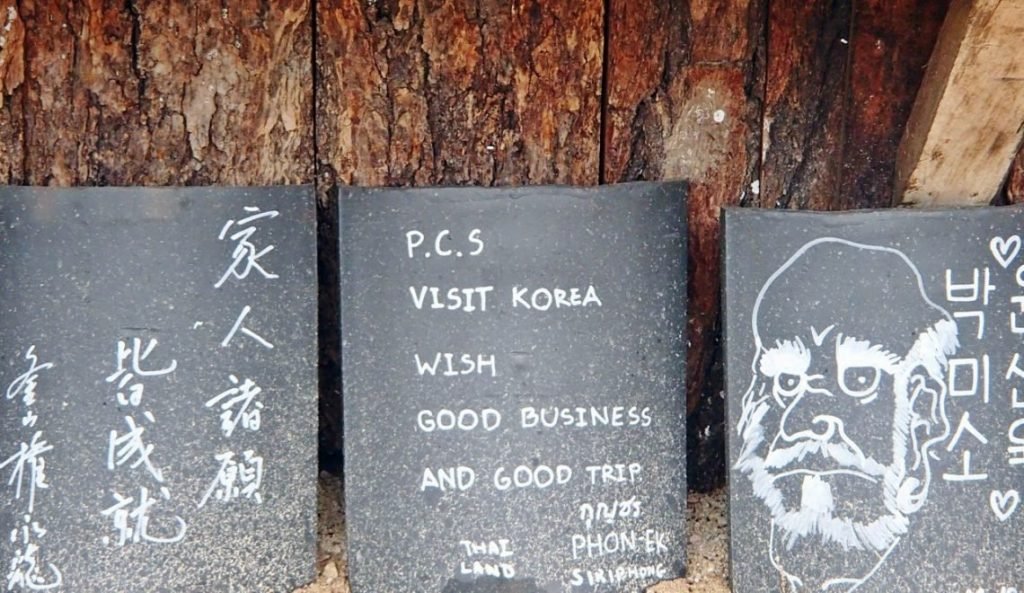 家人諸願
皆成就
釜山 權永龍
P.C.S
VISIT KOREA
WISH
GOOD BUSINESS
AND GOOD TRIP
THAI
LAND
PHON-EK
SIRIPHONG
박미소